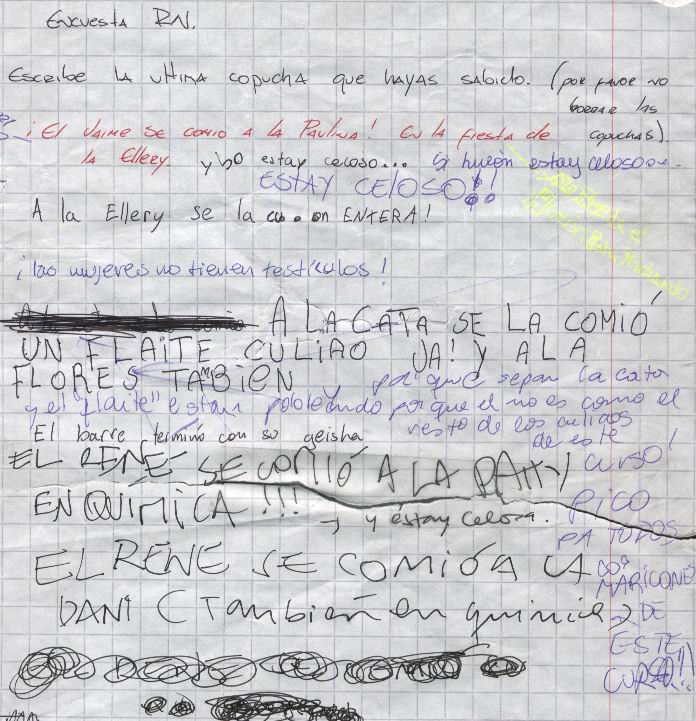 Encuesta RN.
Escribe la ultima copucha que hayas sabido. (por favor no
borrar las
copuchas).
¡El Jaime se comio a la Paulina! En la fiesta de
la Ellery y bo estay celoso... Si hueón estay celoso
ESTAY CELOSO!!
A la Ellery se la on ENTERA!
¡las mujeres no tienen testículos!
A LA CATA SE LA COMIÓ
UN FLAITE CULIAO JA! Y A LA
FLORES TAMBIEN
pa' que sepan la cata
y el "flaite" estan pololeando porque el no es como el
resto de los culiaos
de este
curso!
El barre termino con su geisha
EL RENE SE COMIÓ A LA PATTY
EN QUÍMICA !!!
y estay celosa.
PICO
PA TODOS
LOS
MARICONES
DE
ESTE
CURSO!!
EL RENE SE COMIÓ A LA
DANI (También en quimica)